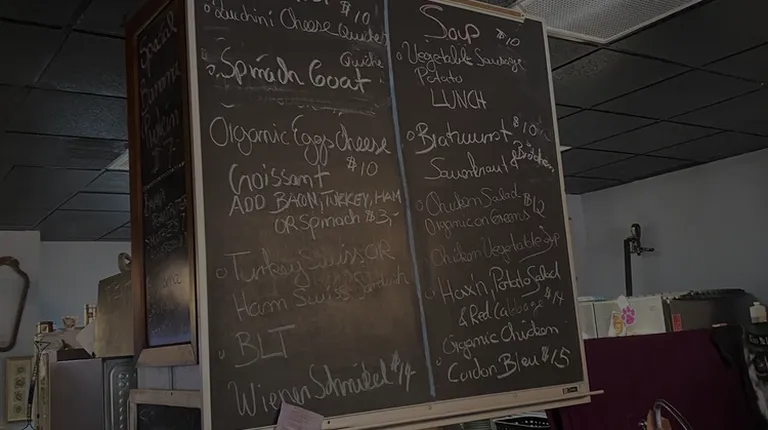 Special
Banana
$7
Zucchini Cheese Quiche $10
Quiche
Spinach Goat
Organic Eggs Cheese
$10
Croissant
ADD BACON, TURKEY, HAM
OR Spinach $3,-
Turkey Swiss OR
Ham Swiss Sandwich
BLT
Wiener Schnitzel $14
Soup $10
Vegetable Sausage
Potato
LUNCH
Bratwurst $10
Sauerkraut & Brötchen
Chicken Salad $12
Organic on Greens
Chicken Vegetable Sp
Hax'n, Potato Salad
& Red Cabbage $14
Organic Chicken
Cordon Bleu $15